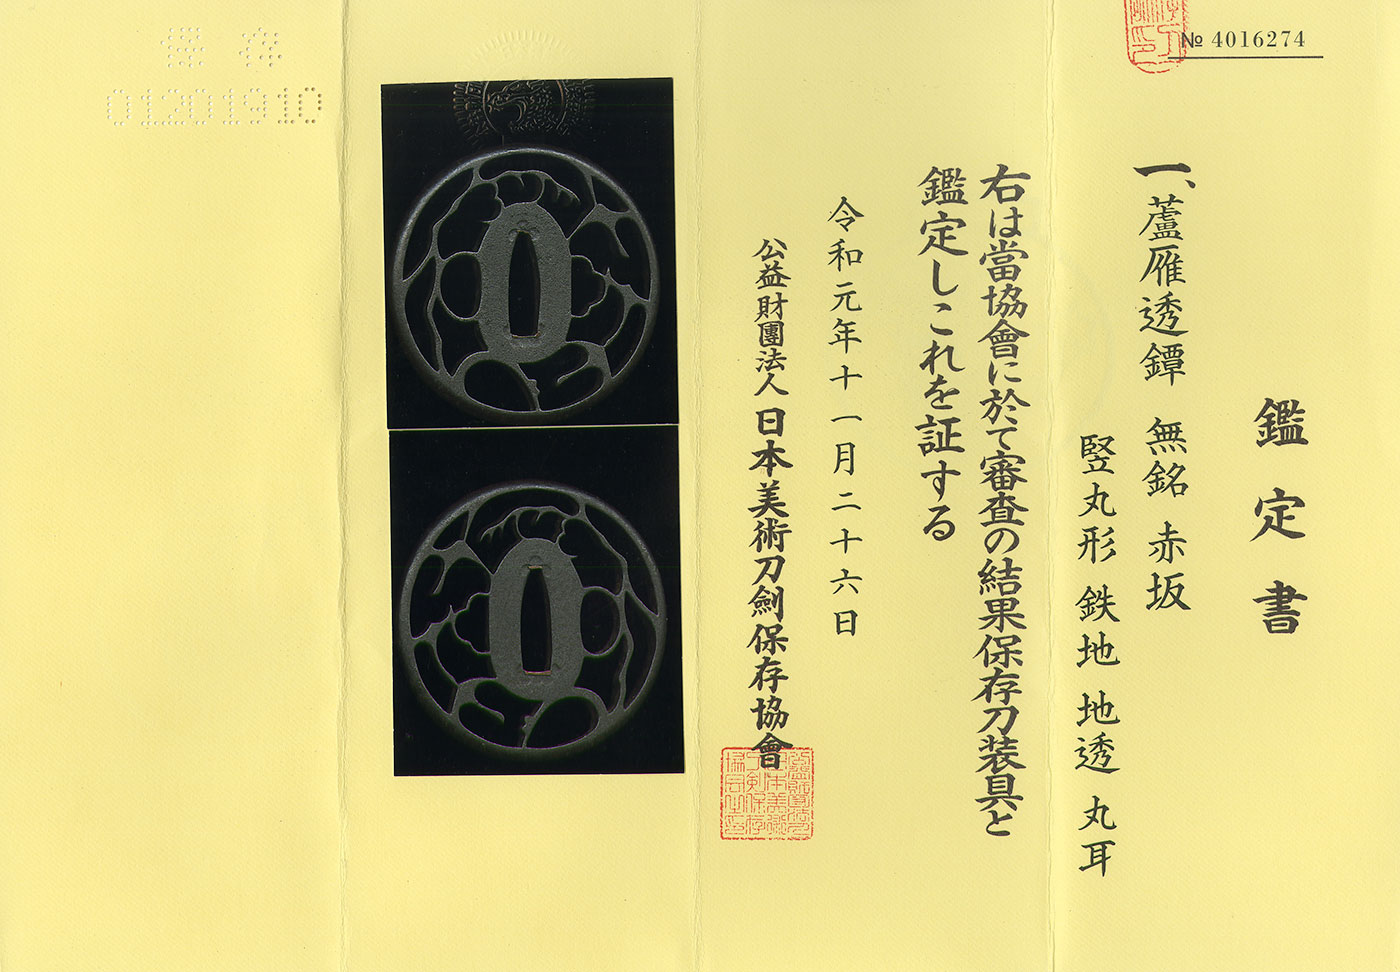 № 4016274
鑑定書
一、蘆雁透鐔 無銘 赤坂
竪丸形 鉄地 地透 丸耳
右は當協會に於て審査の結果保存刀装具と
鑑定しこれを証する
令和元年十一月二十六日
公益財團法人 日本美術刀劍保存協會
保存
01201910